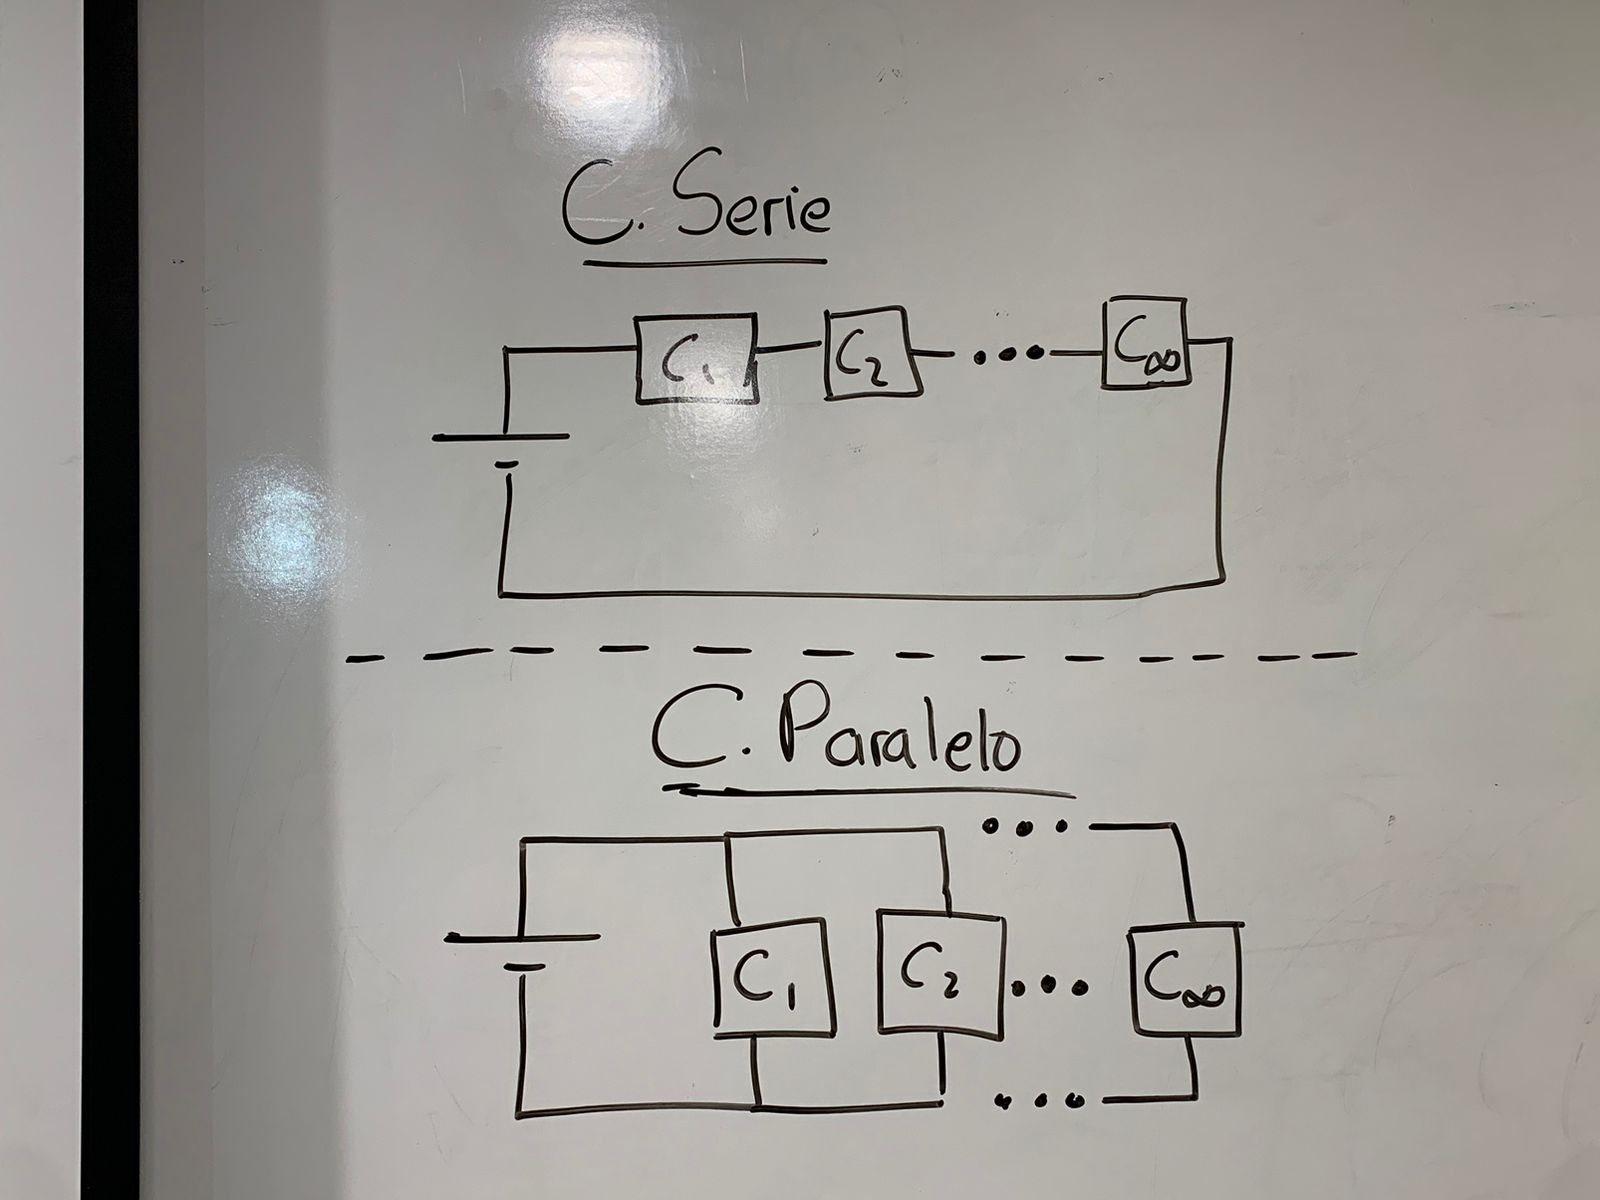 C. Serie
C₁ C₂ ... C∞
C. Paralelo
...
C₁ C₂ ... C∞
...